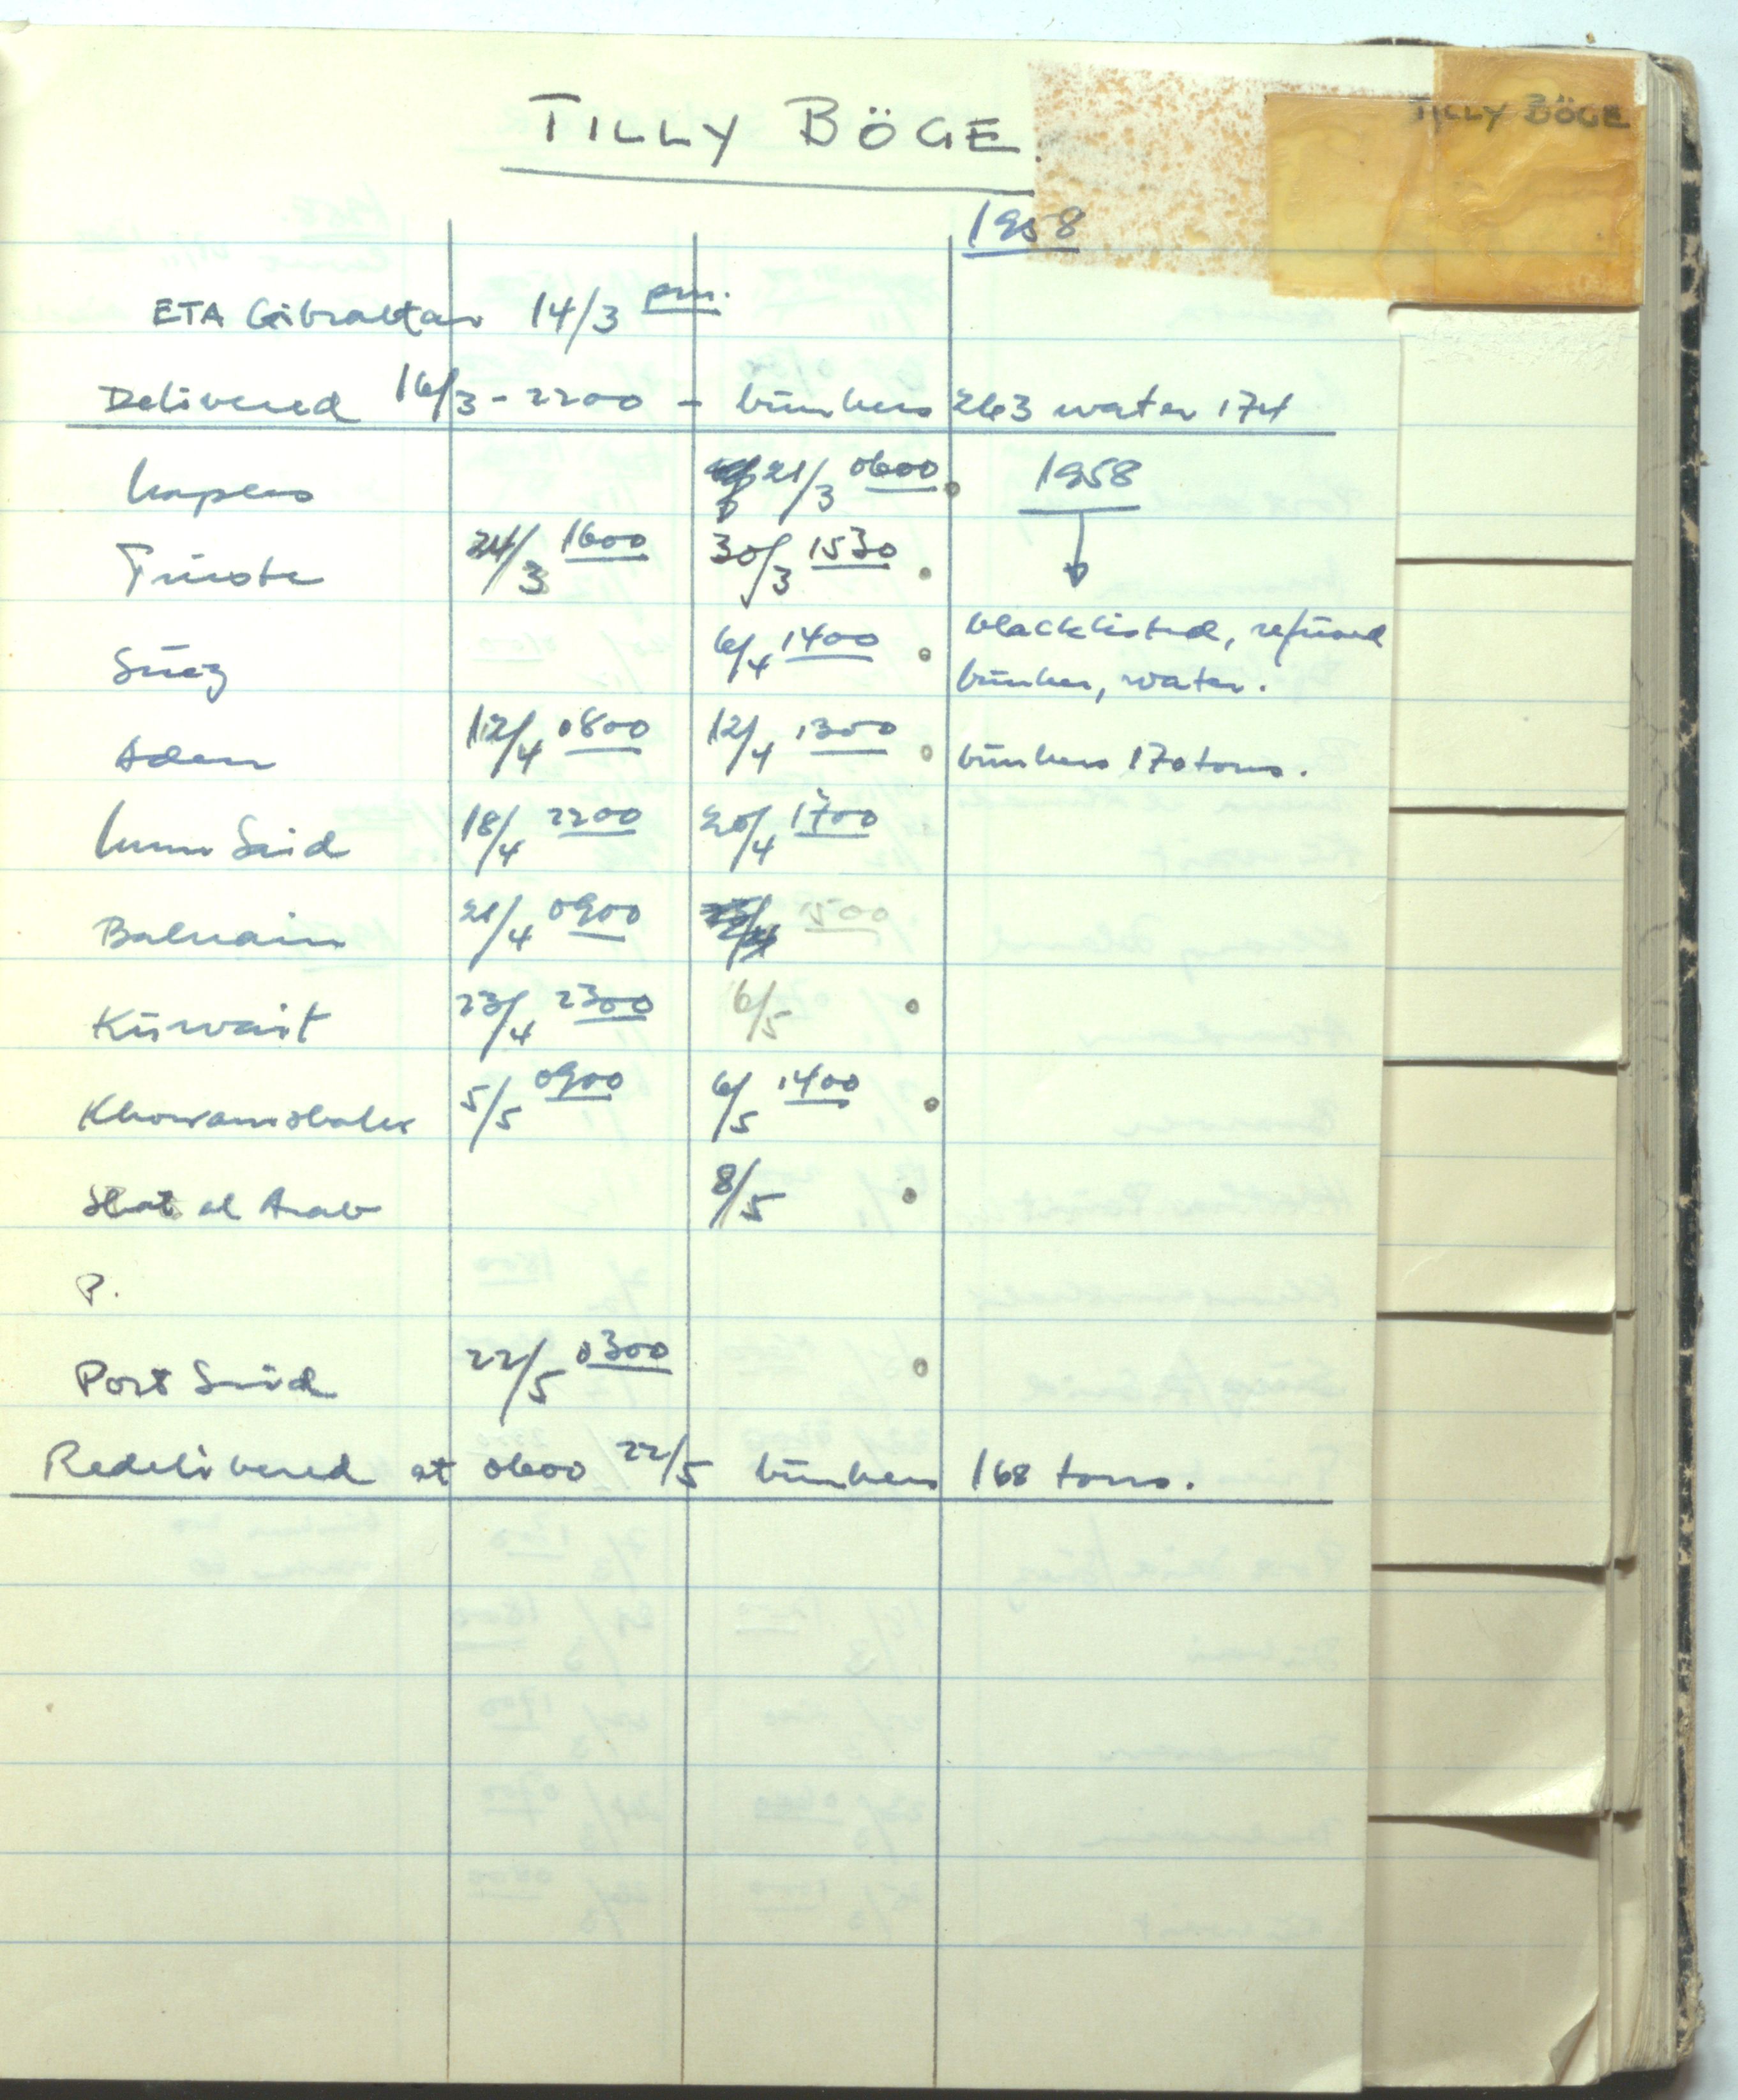 TILLY BÖGE
TILLY BÖGE
1958
ETA Gibraltar 14/3 pm.
Delivered 16/3 - 2200 - bunkers 263 water 174
21/3 0600 1958
Trieste 24/3 1600 30/3 1530
Suez 6/4 1400 blacklisted, refused
bunker, water.
Aden 12/4 0800 12/4 1300 bunkers 170 tons.
Umm Said 18/4 2200 20/4 1700
Bahrain 21/4 0900 1500
Kuwait 23/4 2300 6/5
Khorramshahr 5/5 0900 6/5 1400
Shat el Arab 8/5
P.
Port Said 22/5 0300
Redelivered at 0600 22/5 bunkers 168 tons.